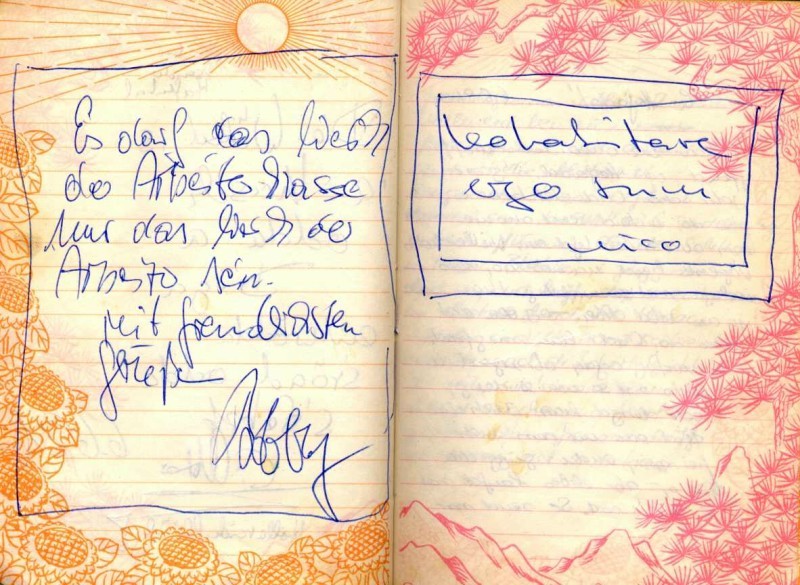 Es darf das Werk
der Arbeiterklasse
nur das Werk der
Arbeiter sein.
mit freundlichsten
Grüßen
kohabitare
ergo sum
nico